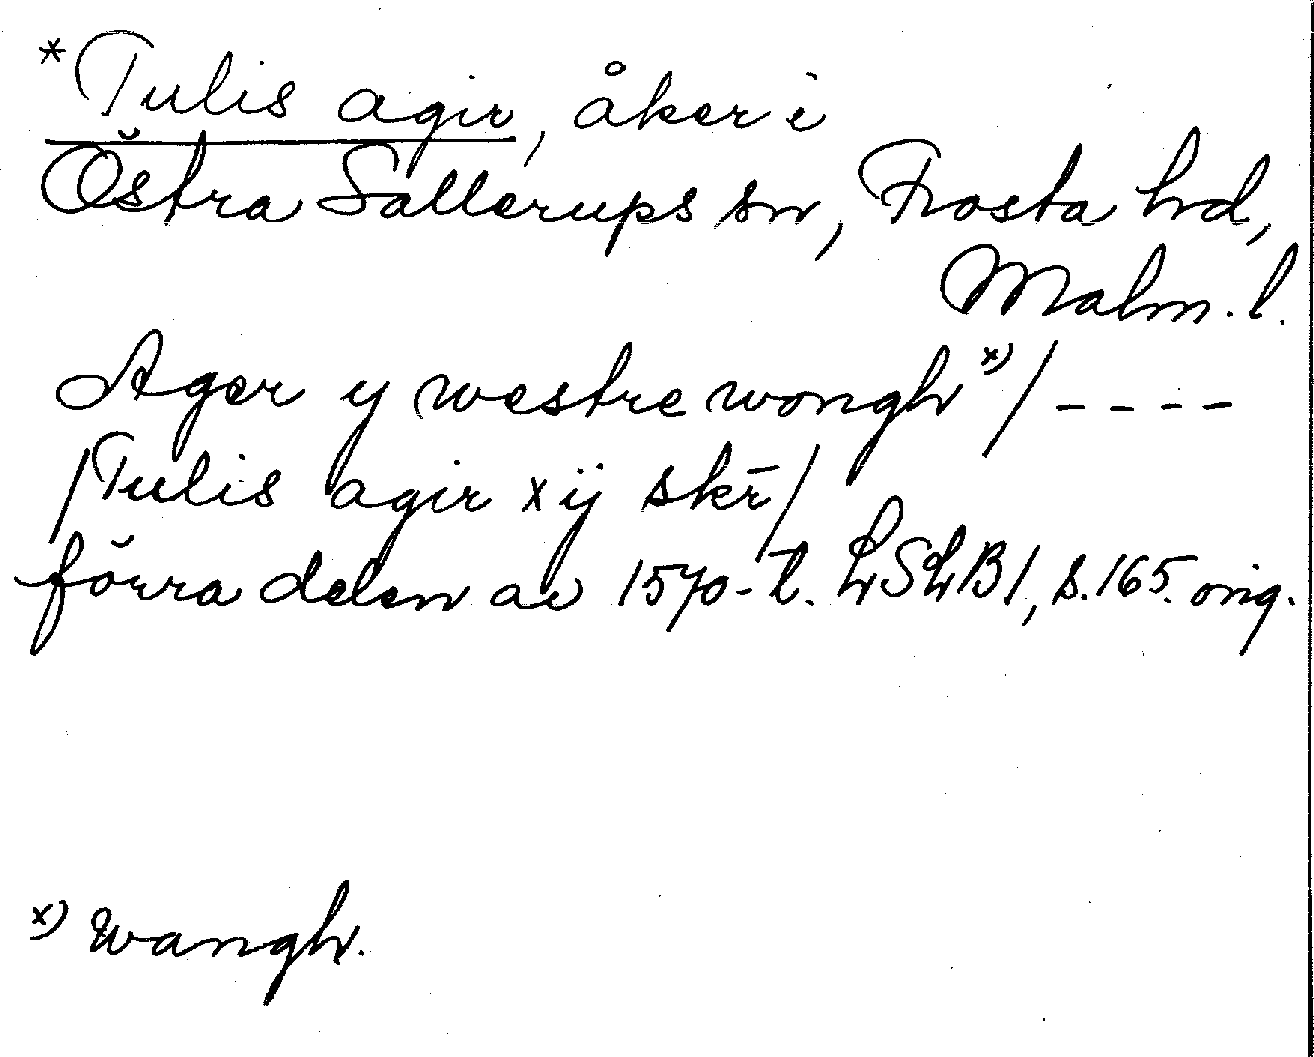 *Tulis agir, åker i
Östra Sallerups sn, Frosta hd,
Malm. l.
Ager y westre wongh x) / - - - -
/Tulis agir xij skr̄/
förra delen av 1570-t. LSLB 1, s. 165. orig.
x) wangh.